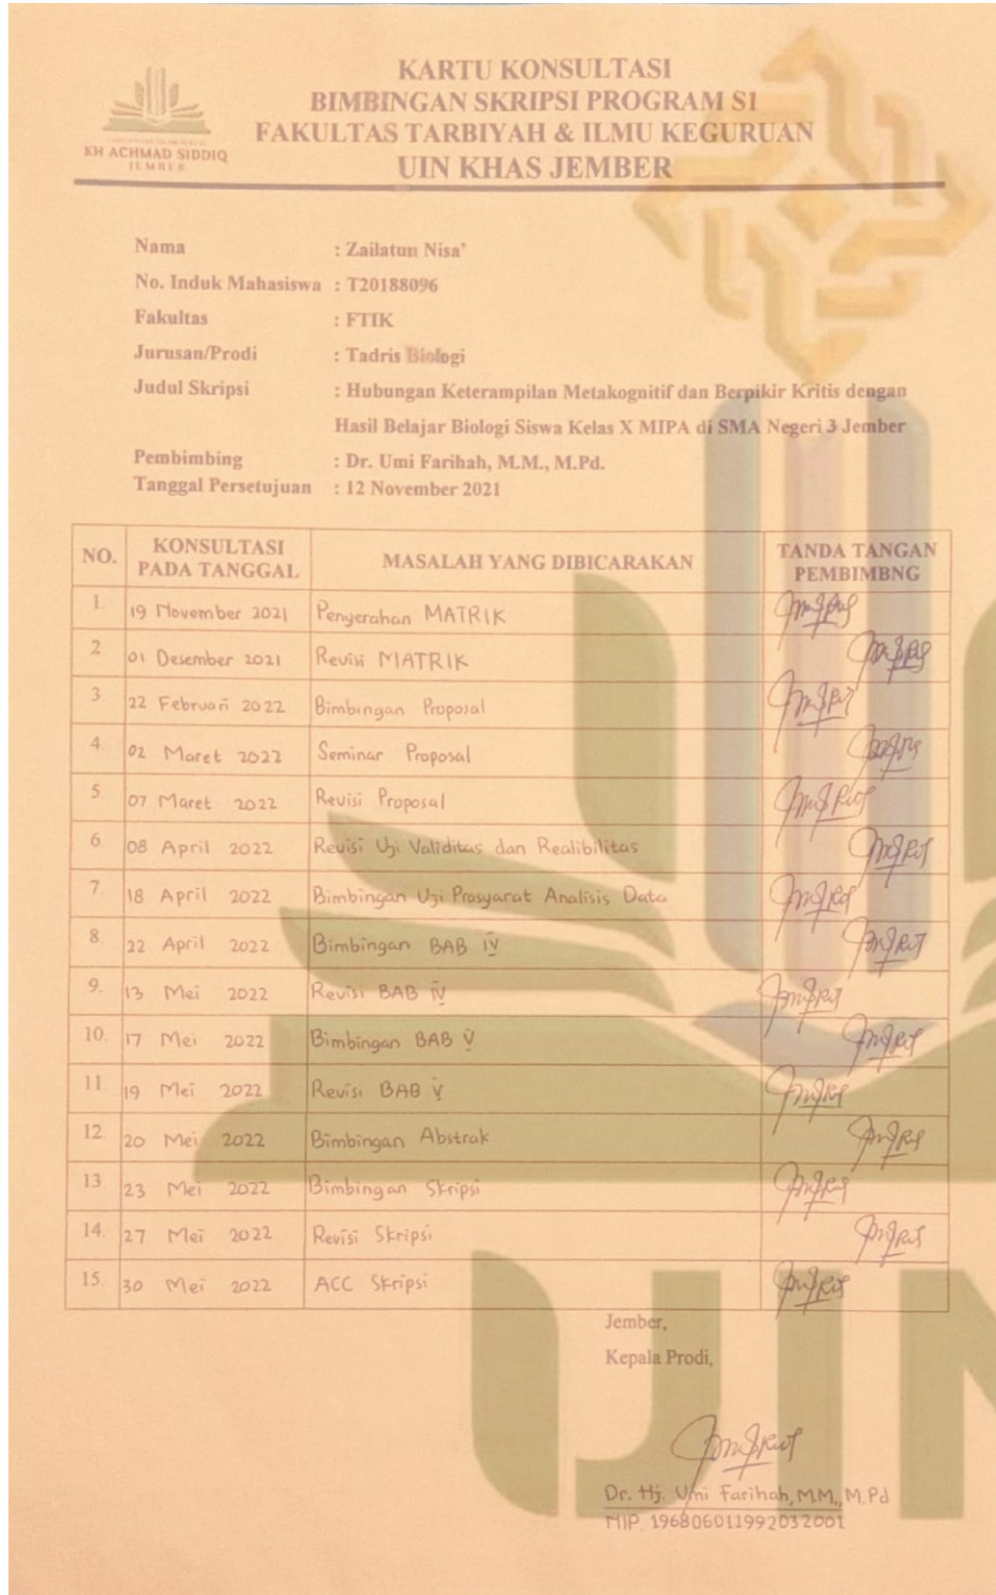 KH ACHMAD SIDDIQ
JEMBER
KARTU KONSULTASI
BIMBINGAN SKRIPSI PROGRAM S1
FAKULTAS TARBIYAH & ILMU KEGURUAN
UIN KHAS JEMBER
Nama : Zailatun Nisa'
No. Induk Mahasiswa : T20188096
Fakultas : FTIK
Jurusan/Prodi : Tadris Biologi
Judul Skripsi : Hubungan Keterampilan Metakognitif dan Berpikir Kritis dengan
Hasil Belajar Biologi Siswa Kelas X MIPA di SMA Negeri 3 Jember
Pembimbing : Dr. Umi Farihah, M.M., M.Pd.
Tanggal Persetujuan : 12 November 2021
NO. KONSULTASI PADA TANGGAL MASALAH YANG DIBICARAKAN TANDA TANGAN PEMBIMBNG
1. 19 November 2021 Penyerahan MATRIK
2 01 Desember 2021 Revisi MATRIK
3 22 Februari 2022 Bimbingan Proposal
4 02 Maret 2022 Seminar Proposal
5 07 Maret 2022 Revisi Proposal
6 08 April 2022 Revisi Uji Validitas dan Realibilitas
7. 18 April 2022 Bimbingan Uji Prasyarat Analisis Data
8 22 April 2022 Bimbingan BAB IV
9. 13 Mei 2022 Revisi BAB IV
10. 17 Mei 2022 Bimbingan BAB V
11 19 Mei 2022 Revisi BAB V
12. 20 Mei 2022 Bimbingan Abstrak
13 23 Mei 2022 Bimbingan Skripsi
14. 27 Mei 2022 Revisi Skripsi
15. 30 Mei 2022 ACC Skripsi
Jember,
Kepala Prodi,
Dr. Hj. Umi Farihah, M.M., M.Pd
NIP. 196806011992032001
UIN